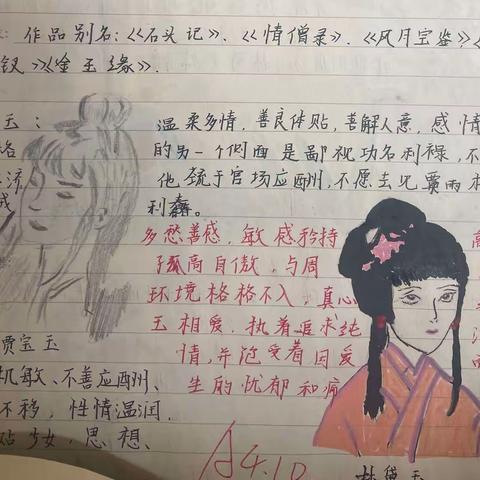 作品别名:《石头记》、《情僧录》、《风月宝鉴》
钗》《金玉缘》.
玉:
温柔多情,善良体贴,善解人意,感情
格
的另一个侧面是鄙视功名利禄,不
流
他疏于官场应酬,不愿去见贾雨村
利
多愁善感,敏感矜持
孤高自傲,与周
环境格格不入,真心
玉相爱,执着追求纯
情,并饱受着因爱
生的忧郁和痛
贾宝玉
机敏、不善应酬、
不移,性情温润.
少女,思想、
A 4.10
林黛玉